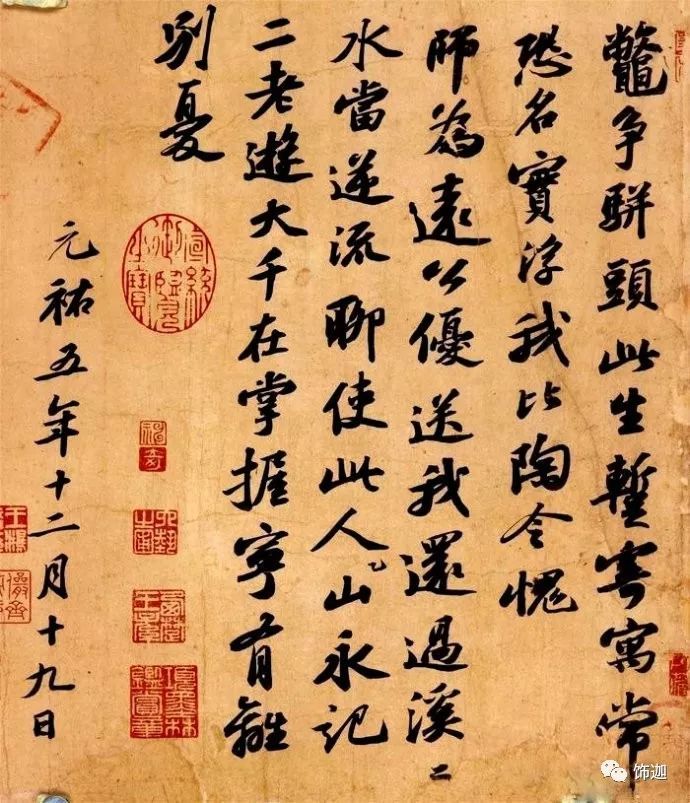 鼇争駢頭此生暫寄寓常
恐名實浮我比陶令愧
師為遠公優送我還過溪二
水當逆流聊使此人山永記
二老遊大千在掌握寧有離
別憂
元祐五年十二月十九日
宣統御覽之寶
項墨林鑑賞章
饰迦